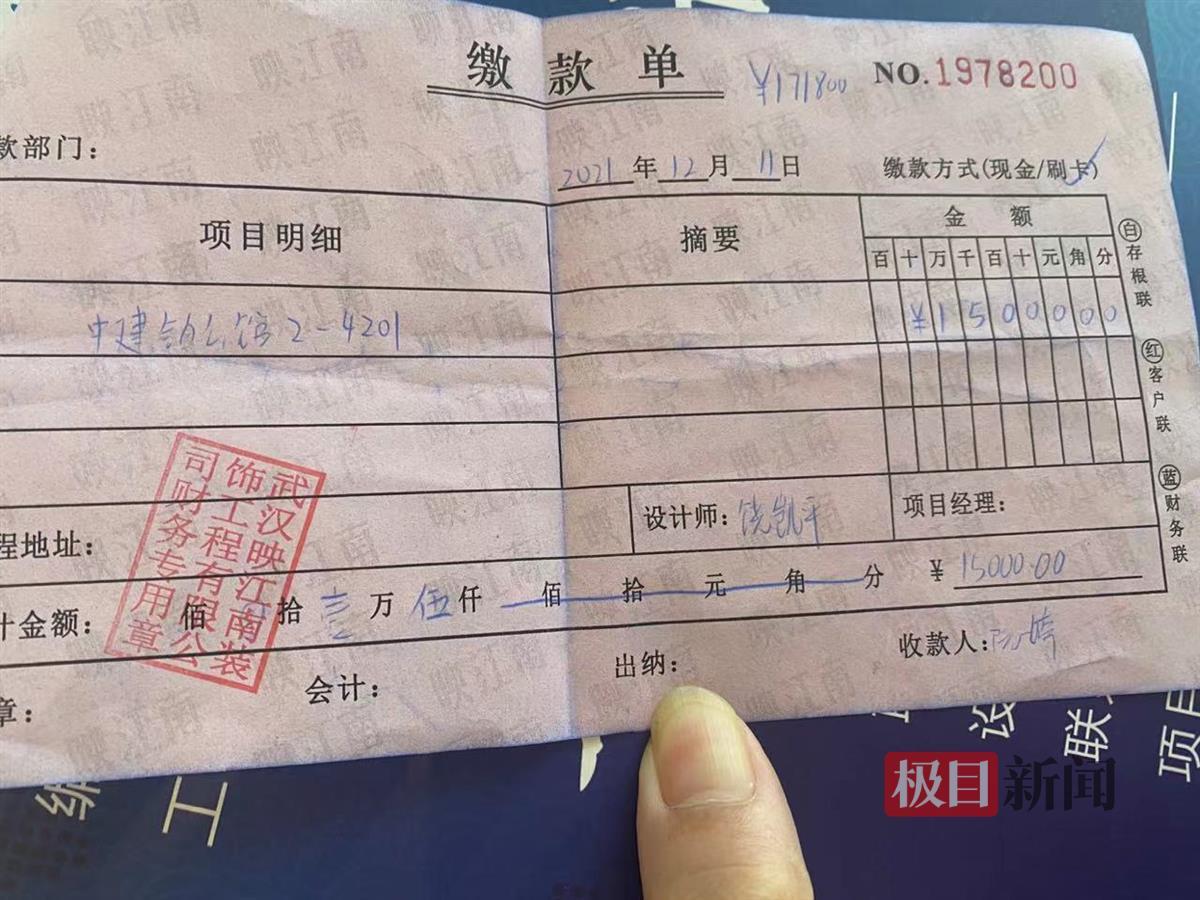 缴款单 ¥171800 NO.1978200
款部门：
2021年12月11日 缴款方式(现金/刷卡)
项目明细 摘要 金额
百十万千百十元角分
中建 公馆2-4201 ¥1500000
白存根联
红客户联
蓝财务联
程地址： 设计师：饶凯平 项目经理：
计金额： 佰 拾 壹万 伍仟 佰 拾 元 角 分 ¥ 15000.00
章： 会计： 出纳： 收款人：
武汉映江南装饰工程有限公司财务专用章
映江南
极目新闻
工
设
联
项目